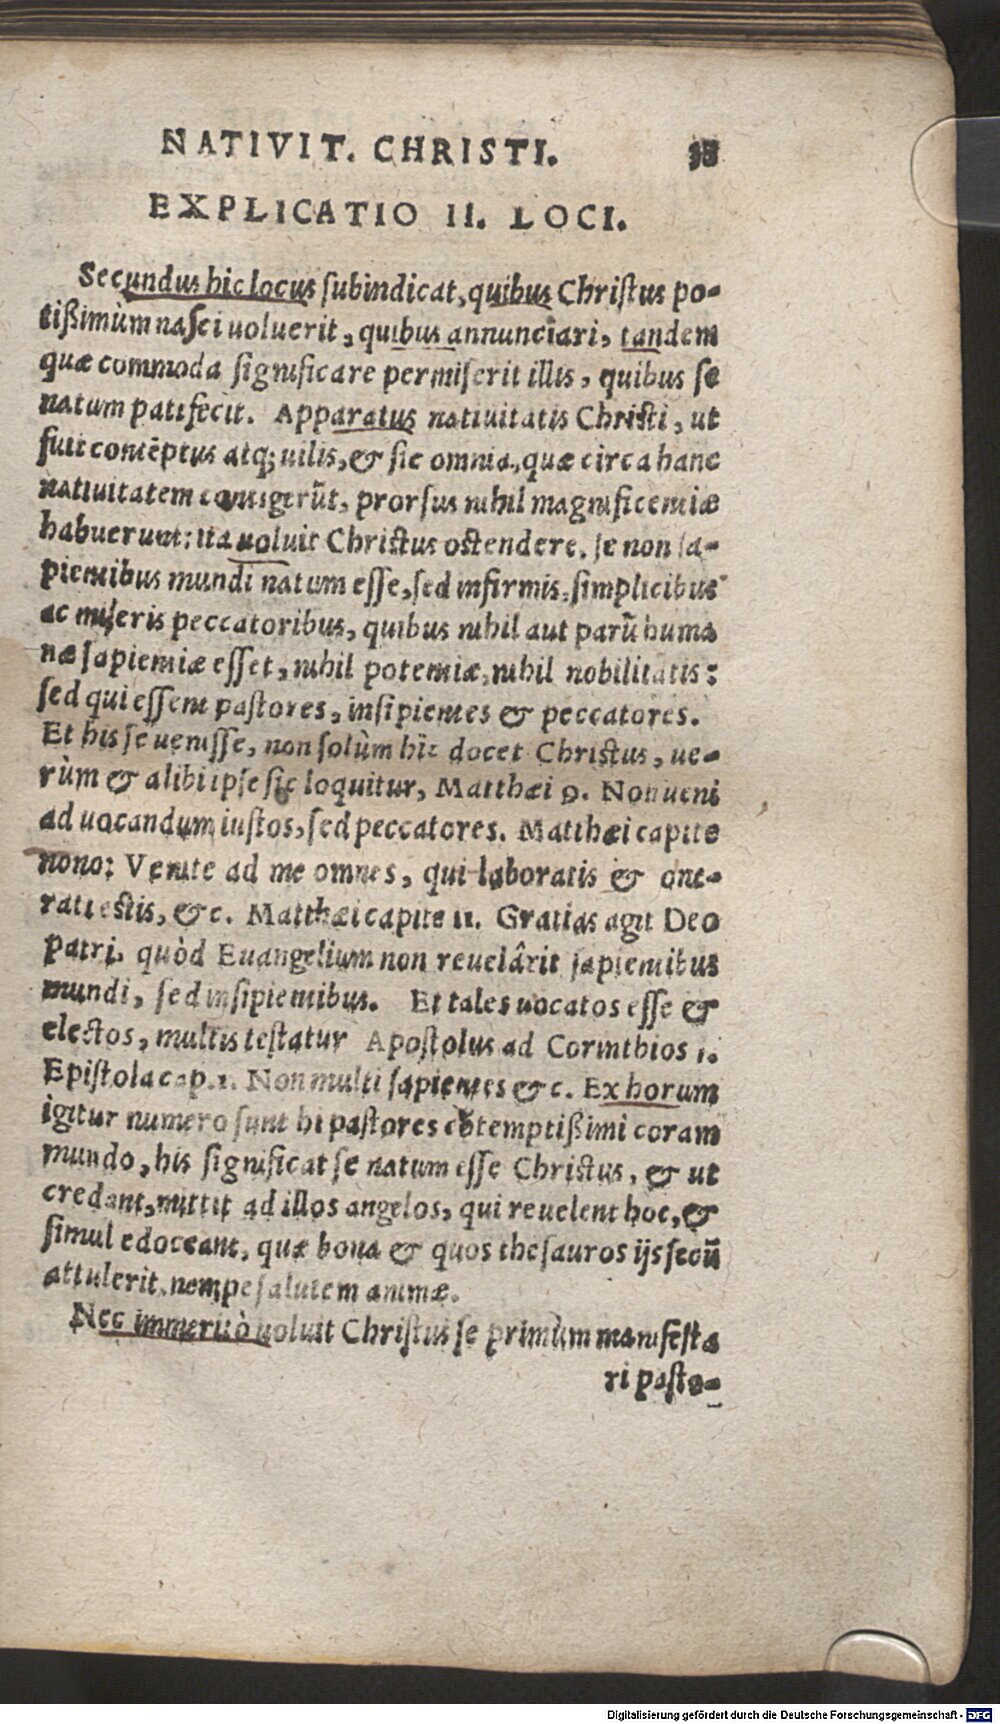 NATIVIT. CHRISTI.
EXPLICATIO II. LOCI.
Secundus hic locus ſubindicat, quibus Chriſtus po-
tißimùm naſci uoluerit, quibus annunciari, tandem
quæ commoda ſignificare permiſerit illis, quibus ſe
natum patefecit. Apparatus natiuitatis Chriſti, ut
fuit contẽptus atq; uilis, & ſic omnia, quæ circa hanc
natiuitatem contigerũt, prorſus nihil magnificentiæ
habuerunt: ita uoluit Chriſtus oſtendere, ſe non ſa-
pientibus mundi natum eſſe, ſed infirmis, ſimplicibus
ac miſeris peccatoribus, quibus nihil aut parũ huma
næ ſapientiæ eſſet, nihil potentiæ, nihil nobilitatis:
ſed qui eſſent paſtores, inſipientes & peccatores.
Et his ſe ueniſſe, non ſolùm hîc docet Chriſtus, ue-
rùm & alibi ipſe ſic loquitur, Matthæi 9. Non ueni
ad uocandum iuſtos, ſed peccatores. Matthæi capite
nono: Venite ad me omnes, qui laboratis & one-
rati eſtis, &c. Matthæi capite 11. Gratias agit Deo
patri, quòd Euangelium non reuelârit ſapientibus
mundi, ſed inſipientibus. Et tales uocatos eſſe &
electos, multis teſtatur Apoſtolus ad Corinthios 1.
Epiſtola cap. 1. Non multi ſapientes &c. Ex horum
igitur numero ſunt hi paſtores cõtemptißimi coram
mundo, his ſignificat ſe natum eſſe Chriſtus, & ut
credant, mittit ad illos angelos, qui reuelent hoc, &
ſimul edoceant, quæ bona & quos theſauros ijs ſecũ
attulerit, nempe ſalutem animæ.
Nec immeritò uoluit Chriſtus ſe primùm manifeſta
ri paſto-
Digitalisierung gefördert durch die Deutsche Forschungsgemeinschaft - DFG